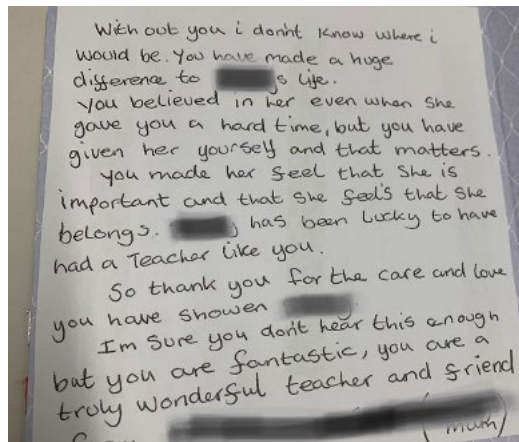 With out you i donnt know where i
would be. You have made a huge
difference to s life.
You believed in her even when she
gave you a hard time, but you have
given her yourself and that matters.
You made her feel that she is
important and that she feel's that she
belongs. has been Lucky to have
had a Teacher like you.
So thank you for the care and love
you have showen
Im sure you don't hear this enough
but you are fantastic, you are a
truly wonderful teacher and friend
(mum)